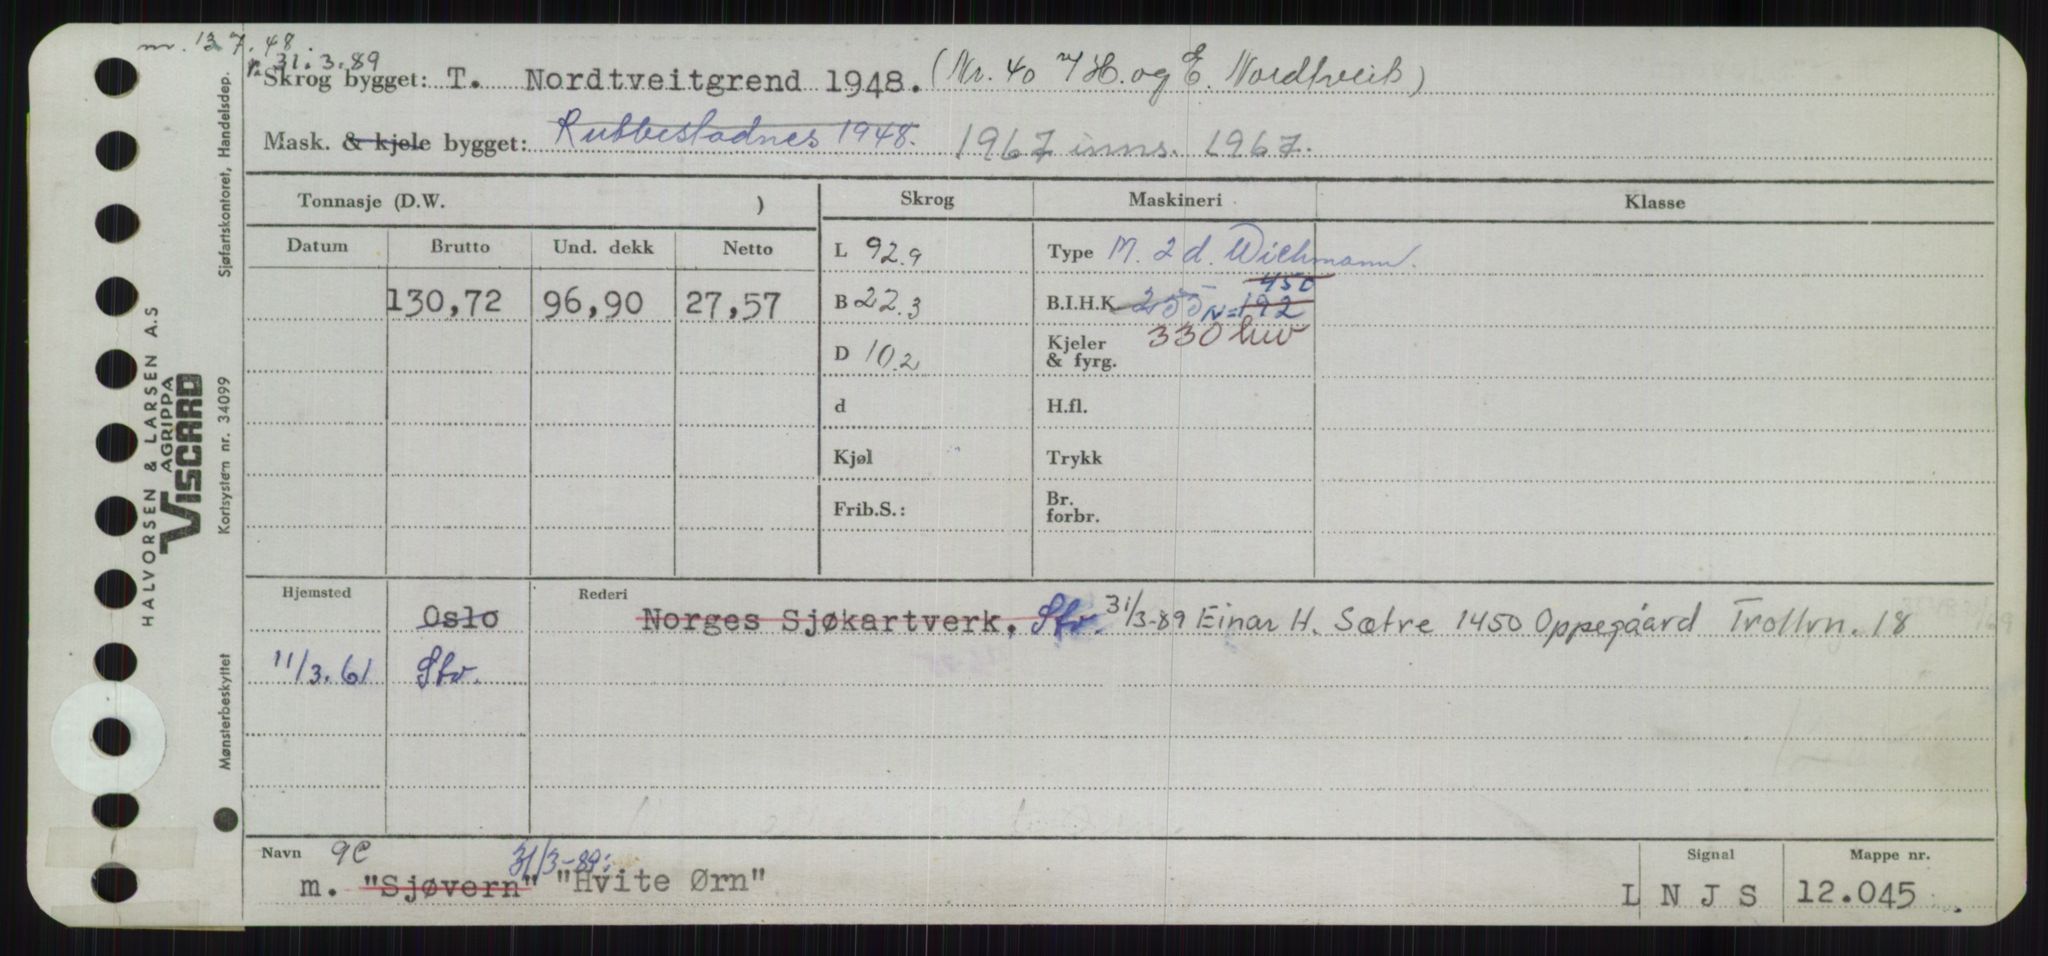 m. 13.7.48
r. 31.3.89
Skrog bygget: T. Nordtveitgrend 1948. (Nr. 40 H. og E. Nordtveit)
Mask. & kjele bygget: Rubbestadnes 1948. 1967 inns. 1967.
Tonnasje (D.W. ) Skrog Maskineri Klasse
Datum Brutto Und. dekk Netto L 92.9 Type M. 2 d. Wichmann.
450
130,72 96,90 27,57 B 22.3 B.I.H.K. 255 N=192
330 hw
D 10.2 Kjeler & fyrg.
d H.fl.
Kjøl Trykk
Frib.S.: Br. forbr.
Hjemsted Oslo Rederi Norges Sjøkartverk. Stv. 31/3-89 Einar H. Sætre 1450 Oppegåard Trollvn. 18
11/3.61 Stv.
Navn 9C 31/3-89: Signal Mappe nr.
m. "Sjøvern" "Hvite Ørn" L N J S 12.045
Sjøfartskontoret, Handelsdep.
Kortsystem nr. 34099
Mønsterbeskyttet
HALVORSEN & LARSEN A.S
AGRIPPA
VISCARD